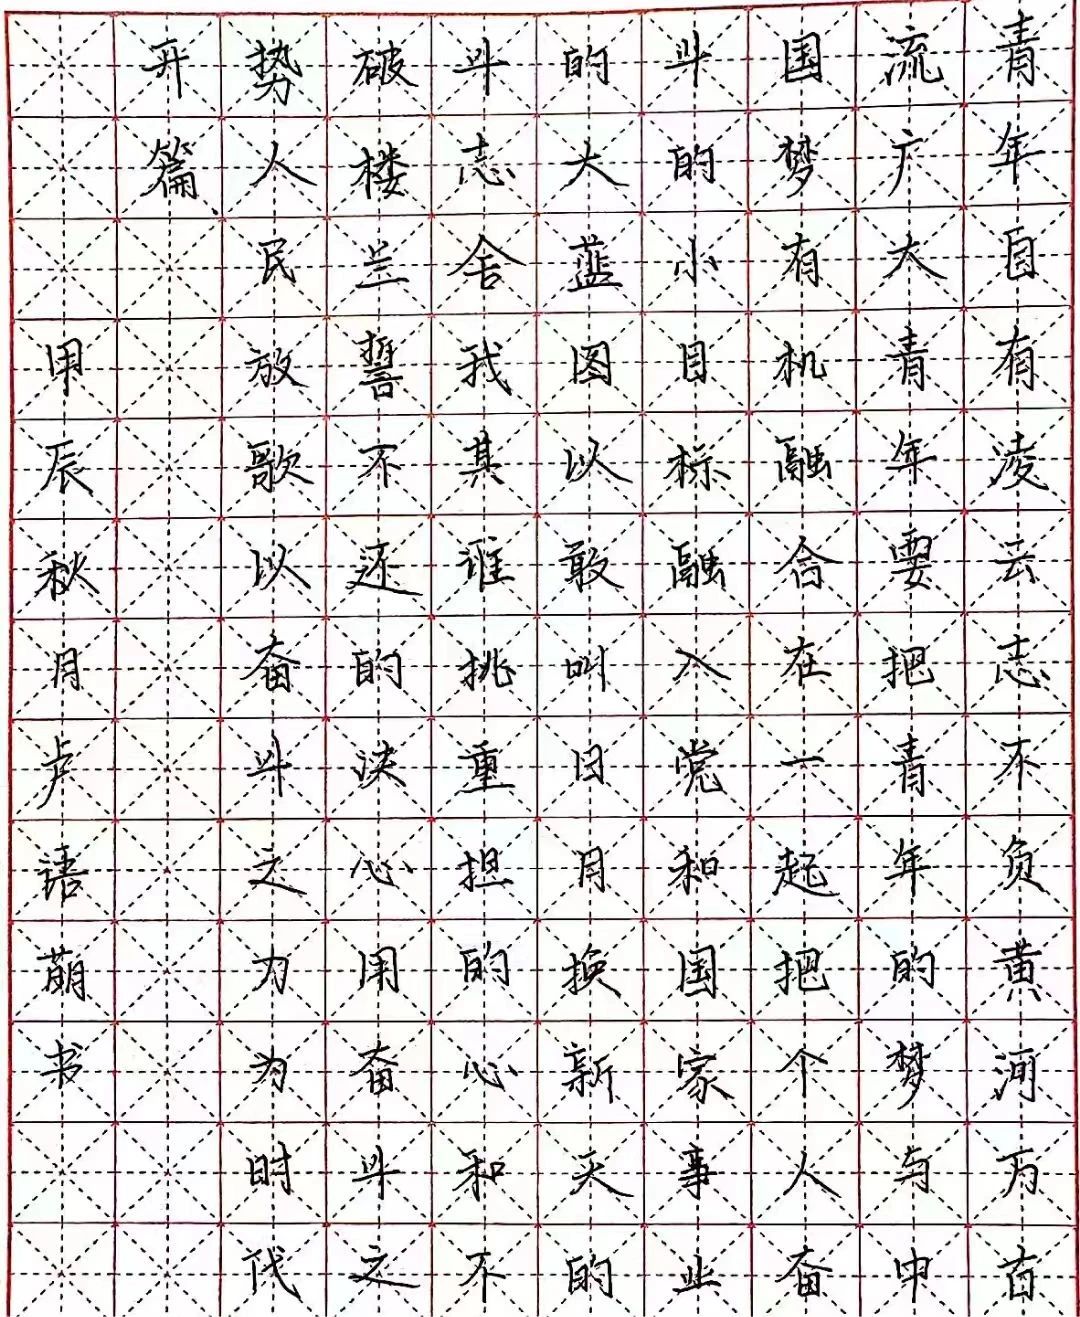 青年自有凌云志不负黄河万古
流广大青年要把青年的梦与中
国梦有机融合在一起把个人奋
斗的小目标融入党和国家事业
的大蓝图以敢叫日月换新天的
斗志舍我其谁挑重担的心和不
破楼兰誓不还的决心用奋斗之
势人民放歌以奋斗之力为时代
开篇
甲辰秋月卢语萌书